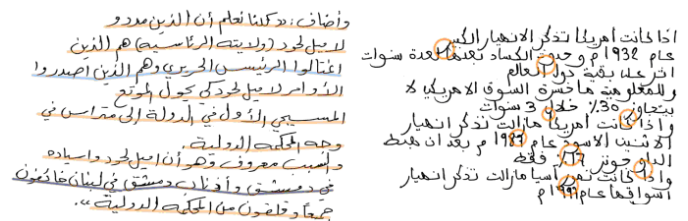 اذا كانت أمريكا تذكر الانهيار الكبير
عام 1932 م وحدوث الكساد بعدها لعدة سنوات
اثر على بقية دول العالم
وللمعلومية ما خسرة السوق الامريكي لا
يتجاوز 30% خلال 3 سنوات
واذا كانت أمريكا مازالت تذكر انهيار
الاثنين الاسود عام 1987 م بعد ان هبط
الداو جونز 22% فقط
واذا كانت نمور آسيا مازالت تذكر انهيار
أسواقها عام 1997 م
وأضاف: «كلنا نعلم أن الذين مددوا
لاميل لحود (ولايته الرئاسية) هم الذين
اغتالوا الرئيس الحريري وهم الذين أصدروا
الأوامر لاميل لحود كي يحول الموقع
المسيحي الأول في الدولة إلى متراس في
وجه المحكمة الدولية.
والسبب معروف وهو أن اميل لحود واسياده
في دمشق وأذناب دمشق في لبنان خائفون
جميعاً وقلقون من المحكمة الدولية».